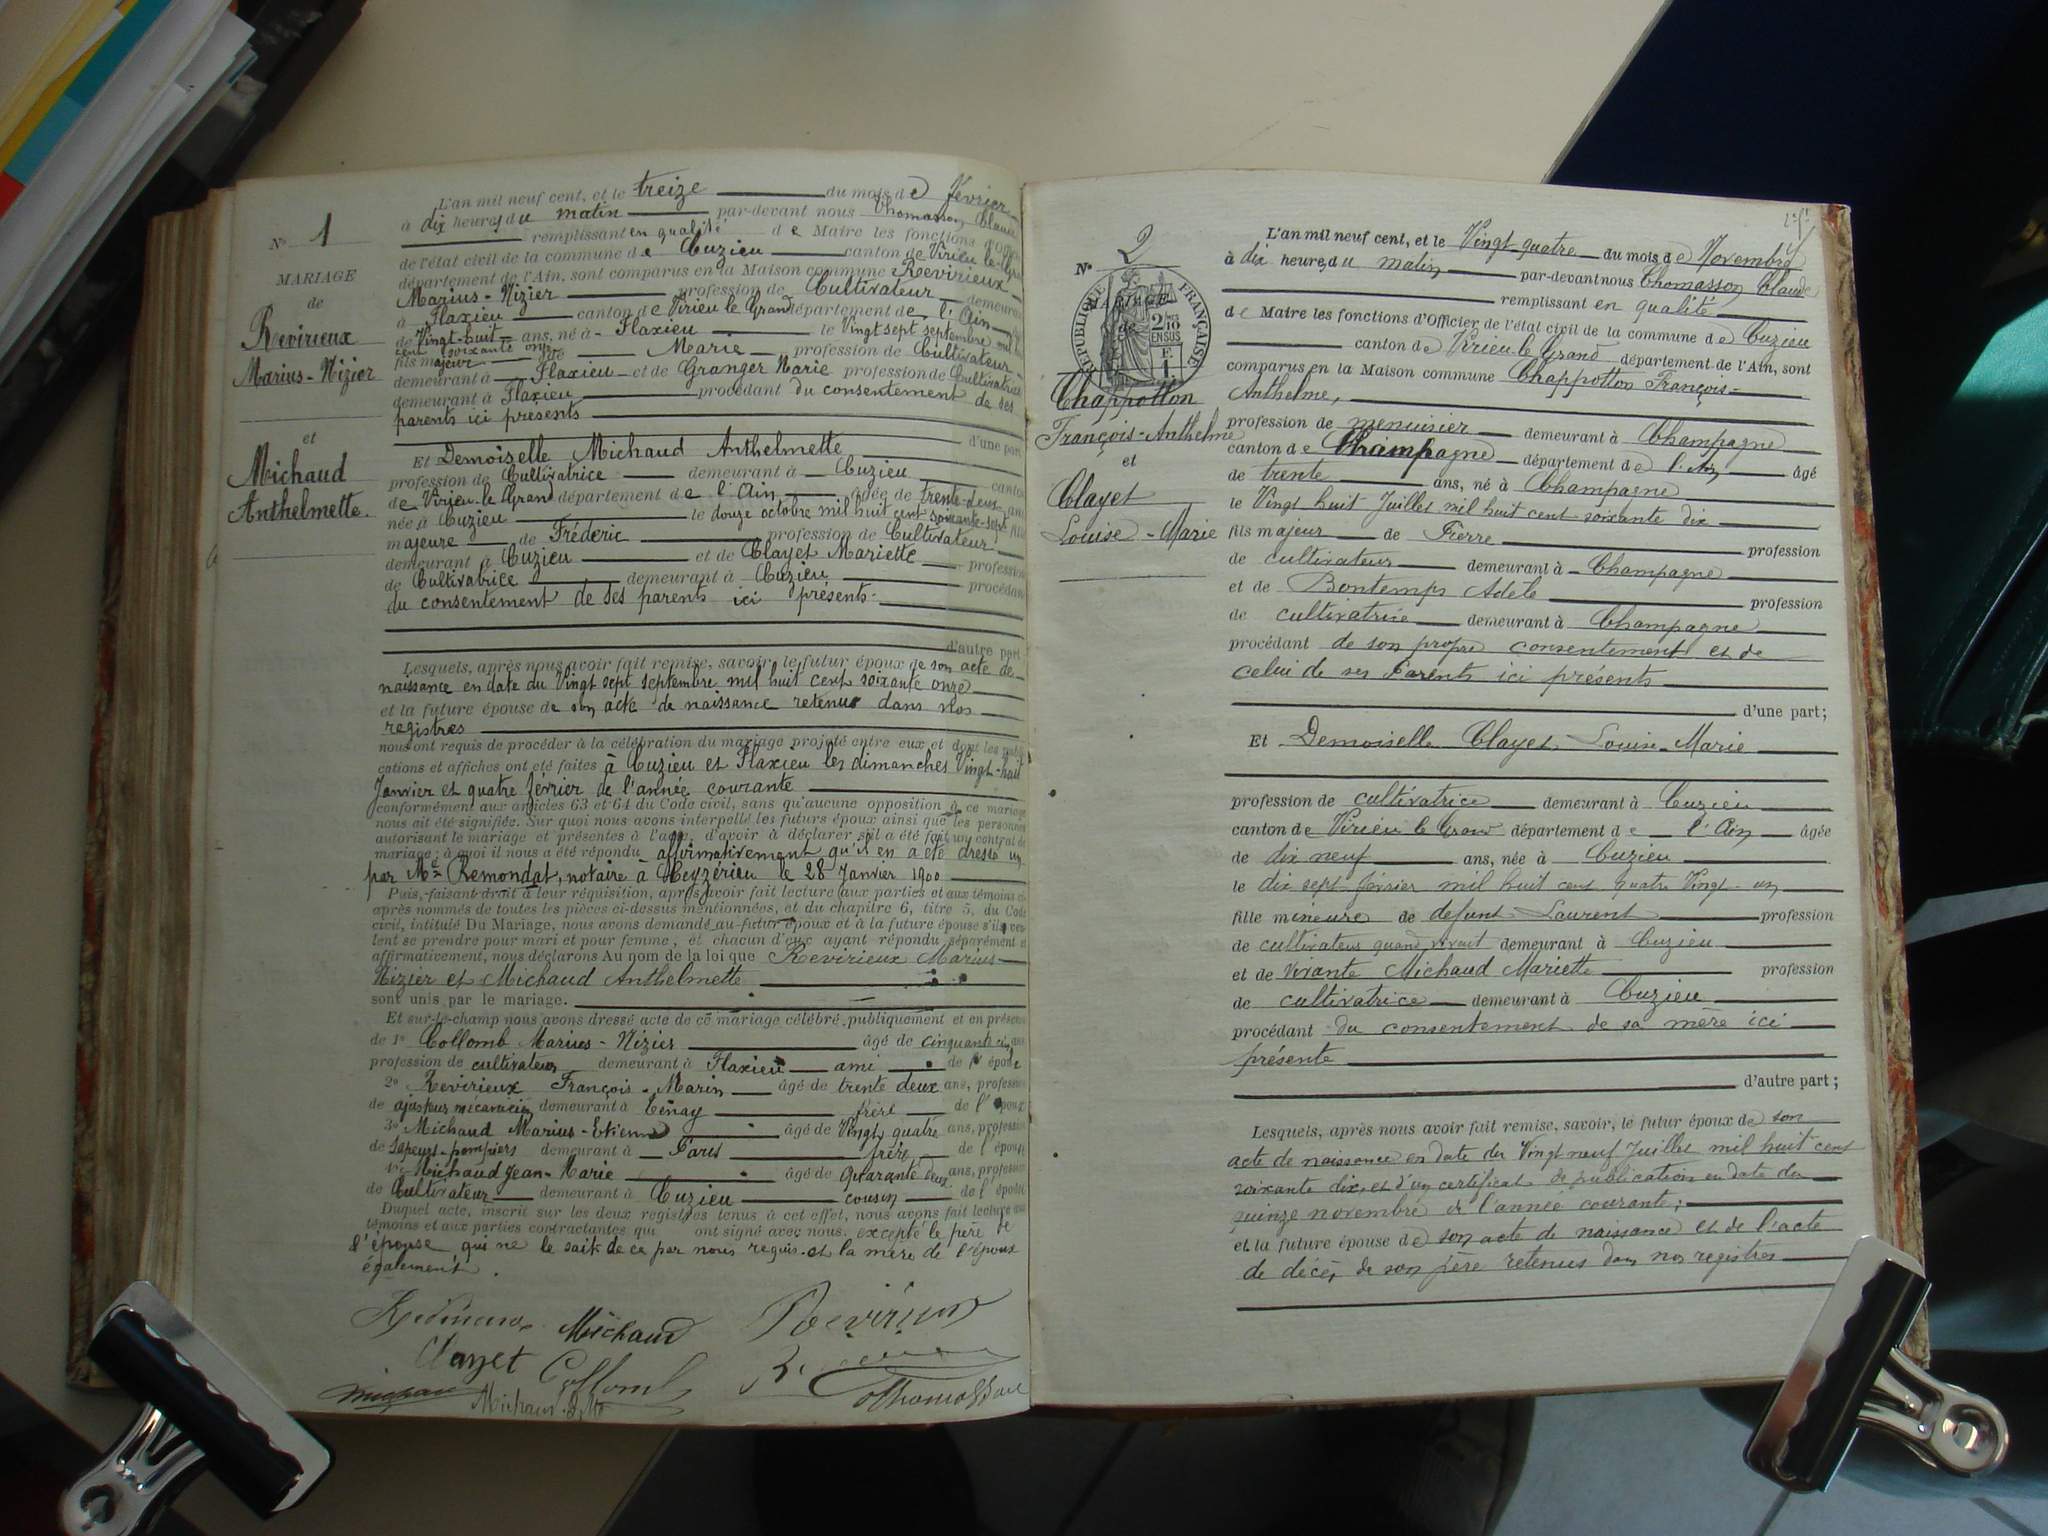 L'an mil neuf cent, et le treize du mois de Février
à dix heures du matin par-devant nous Thomasson Claude
remplissant en qualité de Maire les fonctions d'Officier
de l'état civil de la commune de Cuzieu canton de Virieu-le-Grand
département de l'Ain, sont comparus en la Maison commune Revirieux
Marius-Nizier profession de Cultivateur demeurant
à Flaxieu canton de Virieu le Grand département de l'Ain
de Vingt-huit ans, né à Flaxieu le Vingt sept septembre mil huit
cent soixante onze
fils majeur de Marie profession de Cultivateur
demeurant à Flaxieu et de Granger Marie profession de Cultivatrice
demeurant à Flaxieu procédant du consentement de ses
parents ici présents
d'une part
Et Demoiselle Michaud Anthelmette
profession de Cultivatrice demeurant à Cuzieu canton
de Virieu-le Grand département de l'Ain âgée de trente-deux ans
née à Cuzieu le douze octobre mil huit cent soixante-sept fille
majeure de Fréderic profession de Cultivateur
demeurant à Cuzieu et de Clayet Mariette profession
de Cultivatrice demeurant à Cuzieu procédant
du consentement de ses parents ici présents.
d'autre part
Lesquels, après nous avoir fait remise, savoir, le futur époux de son acte de
naissance en date du Vingt sept septembre mil huit cent soixante onze
et la future épouse de son acte de naissance retenu dans nos
registres
nous ont requis de procéder à la célébration du mariage projeté entre eux et dont les publi-
cations et affiches ont été faites à Cuzieu et Flaxieu les dimanches Vingt-huit
Janvier et quatre février de l'année courante
conformément aux articles 63 et 64 du Code civil, sans qu'aucune opposition à ce mariage
nous ait été signifiée. Sur quoi nous avons interpellé les futurs époux ainsi que les personnes
autorisant le mariage et présentes à l'acte, d'avoir à déclarer s'il a été fait un contrat de
mariage; à quoi il nous a été répondu affirmativement qu'il en a été dressé un
par Me Remondat, notaire à Ceyzérieu le 28 Janvier 1900
Puis, faisant droit à leur réquisition, après avoir fait lecture aux parties et aux témoins ci-
après nommés de toutes les pièces ci-dessus mentionnées, et du chapitre 6, titre 5, du Code
civil, intitulé Du Mariage, nous avons demandé au futur époux et à la future épouse s'ils veu-
lent se prendre pour mari et pour femme, et chacun d'eux ayant répondu séparément et
affirmativement, nous déclarons Au nom de la loi que Revirieux Marius-
Nizier et Michaud Anthelmette
sont unis par le mariage.
Et sur-le-champ nous avons dressé acte de ce mariage célébré publiquement et en présence
de 1° Collomb Marius-Nizier âgé de cinquante ans
profession de cultivateur demeurant à Flaxieu ami de l'époux
2° Revirieux François-Marin âgé de trente deux ans, profession
de ajusteur mécanicien demeurant à Tenay frère de l'époux
3° Michaud Marius-Etienne âgé de Vingt quatre ans, profession
de Sapeurs-pompiers demeurant à Paris frère de l'épouse
4° Michaud Jean-Marie âgé de Quarante deux ans, profession
de Cultivateur demeurant à Cuzieu cousin de l'épouse
Duquel acte, inscrit sur les deux registres tenus à cet effet, nous avons fait lecture aux
témoins et aux parties contractantes qui ont signé avec nous. excepté le père de
l'épouse qui ne le sait de ce par nous requis. et la mère de l'époux
également.
Michaud Revirieux
Clayet Collomb
Thomasson
N° 1
MARIAGE
de
Revirieux
Marius-Nizier
et
Michaud
Anthelmette.
N° 2
RÉPUBLIQUE FRANÇAISE
MARIAGE
de
2/10 EN SUS
F. 1
Chappotton
François-Anthelme
et
Clayet
Louise-Marie
L'an mil neuf cent, et le Vingt-quatre du mois de Novembre
à dix heures du matin par-devant nous Thomasson Claude
remplissant en qualité
de Maire les fonctions d'Officier de l'état civil de la commune de Cuzieu
canton de Virieu le Grand département de l'Ain, sont
comparus en la Maison commune Chappotton François-
Anthelme,
profession de menuisier demeurant à Champagne
canton de Champagne département de l'Ain âgé
de trente ans, né à Champagne
le Vingt huit Juillet mil huit cent soixante dix
fils majeur de Pierre profession
de cultivateur demeurant à Champagne
et de Bontemps Adèle profession
de cultivatrice demeurant à Champagne
procédant de son propre consentement et de
celui de ses Parents ici présents
d'une part;
Et Demoiselle Clayet Louise-Marie
profession de cultivatrice demeurant à Cuzieu
canton de Virieu le Grand département de l'Ain âgée
de dix neuf ans, née à Cuzieu
le dix sept février mil huit cent quatre Vingt-un
fille mineure de defunt Laurent profession
de cultivateur quand vivait demeurant à Cuzieu
et de vivante Michaud Mariette profession
de cultivatrice demeurant à Cuzieu
procédant du consentement de sa mère ici
présente
d'autre part;
Lesquels, après nous avoir fait remise, savoir, le futur époux de son
acte de naissance en date du Vingt neuf Juillet mil huit cent
soixante dix, et d'un certificat de publication en date du
quinze novembre de l'année courante;
et la future épouse de son acte de naissance et de l'acte
de décès de son père retenus dans nos registres